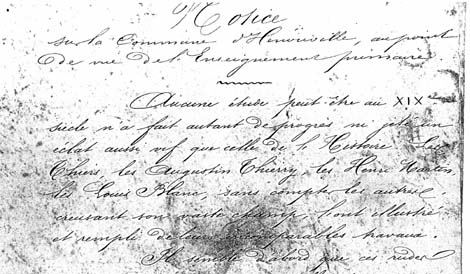 Notice
sur la Commune d'Hénouville, au point
de vue de l'Enseignement primaire
Aucune étude peut-être au XIXe
siècle n'a fait autant de progrès ni jeté un
éclat aussi vif que celle de l'Histoire. Les
Thiers, les Augustin Thierry, les Henri Martin
les Louis Blanc, sans compter les autres,
creusant son vaste champ, l'ont illustré
et rempli de leurs incomparables travaux.
Il semble d'abord que ces rudes